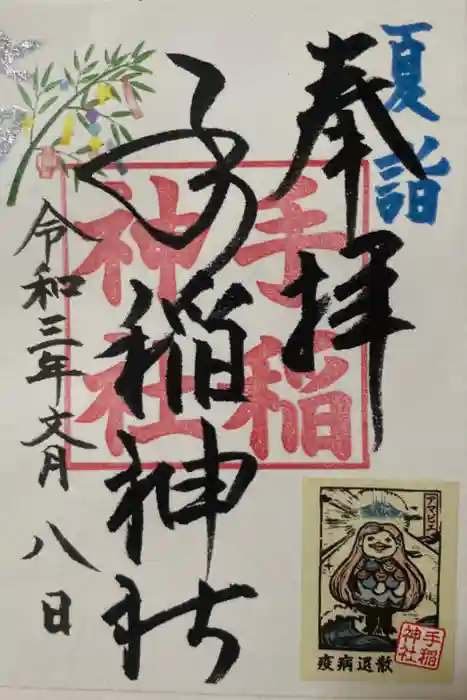 夏詣
奉拝
手稲神社
手稲神社
令和三年文月八日
アマビエ
疫病退散
手稲神社